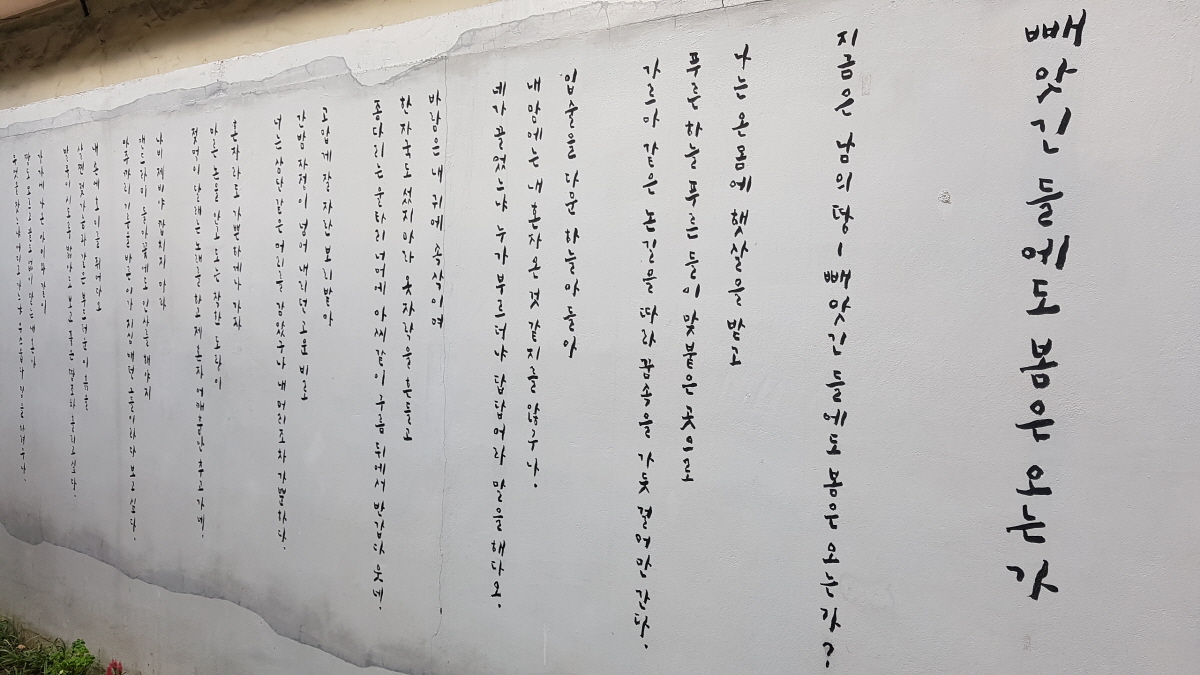 빼앗긴 들에도 봄은 오는 가
지금은 남의 땅 ㅣ 빼앗긴 들에도 봄은 오는가?
나는 온몸에 햇살을 받고
푸른 하늘 푸른 들이 맞붙은 곳으로
가르마 같은 논길을 따라 꿈속을 가듯 걸어만 간다.
입술을 다문 하늘아 들아
내 맘에는 내 혼자 온 것 같지를 않구나.
네가 끌었느냐 누가 부르더냐 답답어라 말을 해다오.
바람은 내 귀에 속삭이며
한 자국도 섰지 마라 옷자락을 흔들고
종다리는 울타리 너머에 아씨같이 구름 뒤에서 반갑다 웃네.
고맙게 잘 자란 보리밭아
간밤 자정이 넘어 내리던 고운 비로
너는 삼단 같은 머리를 감았구나 내 머리조차 가뿐하다.
혼자라도 가쁘하게나 가자
마른 논을 안고 도는 착한 도랑이
젖먹이 달래는 노래를 하고 제 혼자 어깨춤만 추고 가네.
나비 제비야 깝치지 마라
맨드라미 들마꽃에도 인사를 해야지
아주까리 기름을 바른 이가 지심 매던 그 들이라 다 보고 싶다.
내 손에 호미를 쥐어다오
살찐 젖가슴과 같은 부드러운 이 흙을
발목이 시도록 밟아도 보고 좋은 땀조차 흘리고 싶다.
강가에 나온 아이와 같이